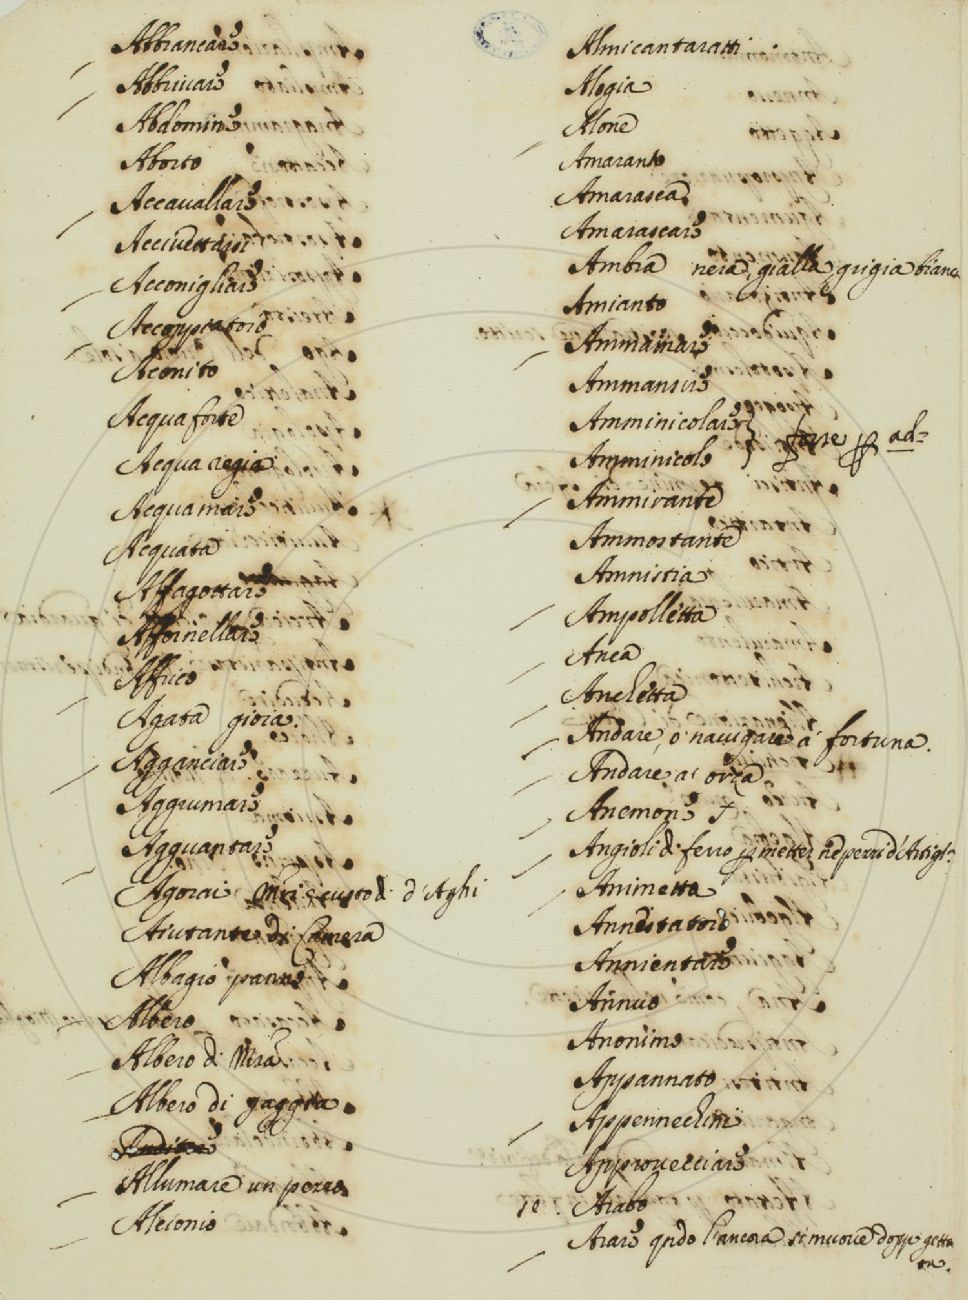 Abbrancare
Abbrivare
Abdomine
Aborto
Accavallare
Accivettarsi
Acconigliare
Accoppiatore
Aconito
Acqua forte
Acqua regia
Acquamare
Acquata
Affagottare
Affornellare
Affrico
Agata gioia.
Agganciare
Aggrumare
Agguantare
Agorai custodi d'Aghi
Aiutante di Camera
Albagio panno
Albero
Albero di
Albero di gaggia
Allumare un pezzo
Alcionio
Almicantaratti
Alogia
Alone
Amaranto
Amarasca
Amarascare
Ambra nera, gialla, grigia bianca
Amianto
Ammainare
Ammansire
Amminicolare
Amminicolo } forse ad=
Ammirante
Ammostante
Amnistia
Ampolletta
Anca
Anchetta
Andare, ò navigare à fortuna.
Andare à orza
Anemone
Angioli di ferro mettere
Animetta
Annestatore
Annientare
Annuo
Anonimo
Appannato
Appennechini
Approvecciare
Arabo
Arare qndo l'ancora si muove doppo getta
ta.